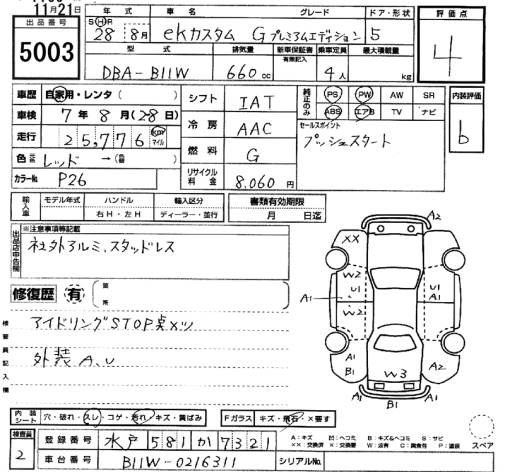 11月21日
出品番号
5003
年式 車名 グレード ドア・形状
S H R
28年 8月 ekカスタム Gプレミアムエディション 5
型式 排気量 新車保証書 有無記入 乗車定員 最大積載量
DBA-B11W 660cc 4人 kg
評価点
4
車歴 自家用・レンタ( )
車検 7年8月(28日)
走行 25,776 km マイル
色 レッド → (色替)
カラーNo. P26
シフト IAT
冷房 AAC
燃料 G
リサイクル料金 8,060円
純正のみ PS PW AW SR
ABS エアB TV ナビ
セールスポイント
プッシュスタート
内装評価
b
輸入車 モデル年式 ハンドル 輸入区分
右H・左H ディーラー・並行
書類有効期限
月 日迄
出品店申告欄
※注意事項等記載
社外アルミ、スタッドレス
修復歴 有 箇所
検査員記入欄
アイドリングSTOP点メツ
外装A、U
A2
XX
W2 U1
A1
W2
U1
A1
A1
B1
W3
A1
A2
B1
内装シート 穴・破れ・スレ・コゲ・汚れ・キズ・黄ばみ
Fガラス キズ・飛石・×要す
スペア
検査員
2
登録番号 水戸581か7321
車台番号 B11W-0216311
シリアルNo.
A:キズ M:ヘコミ B:キズ&ヘコミ S:サビ
XX:交換済 X:要交換 W:波有 C:腐食有 P:塗装